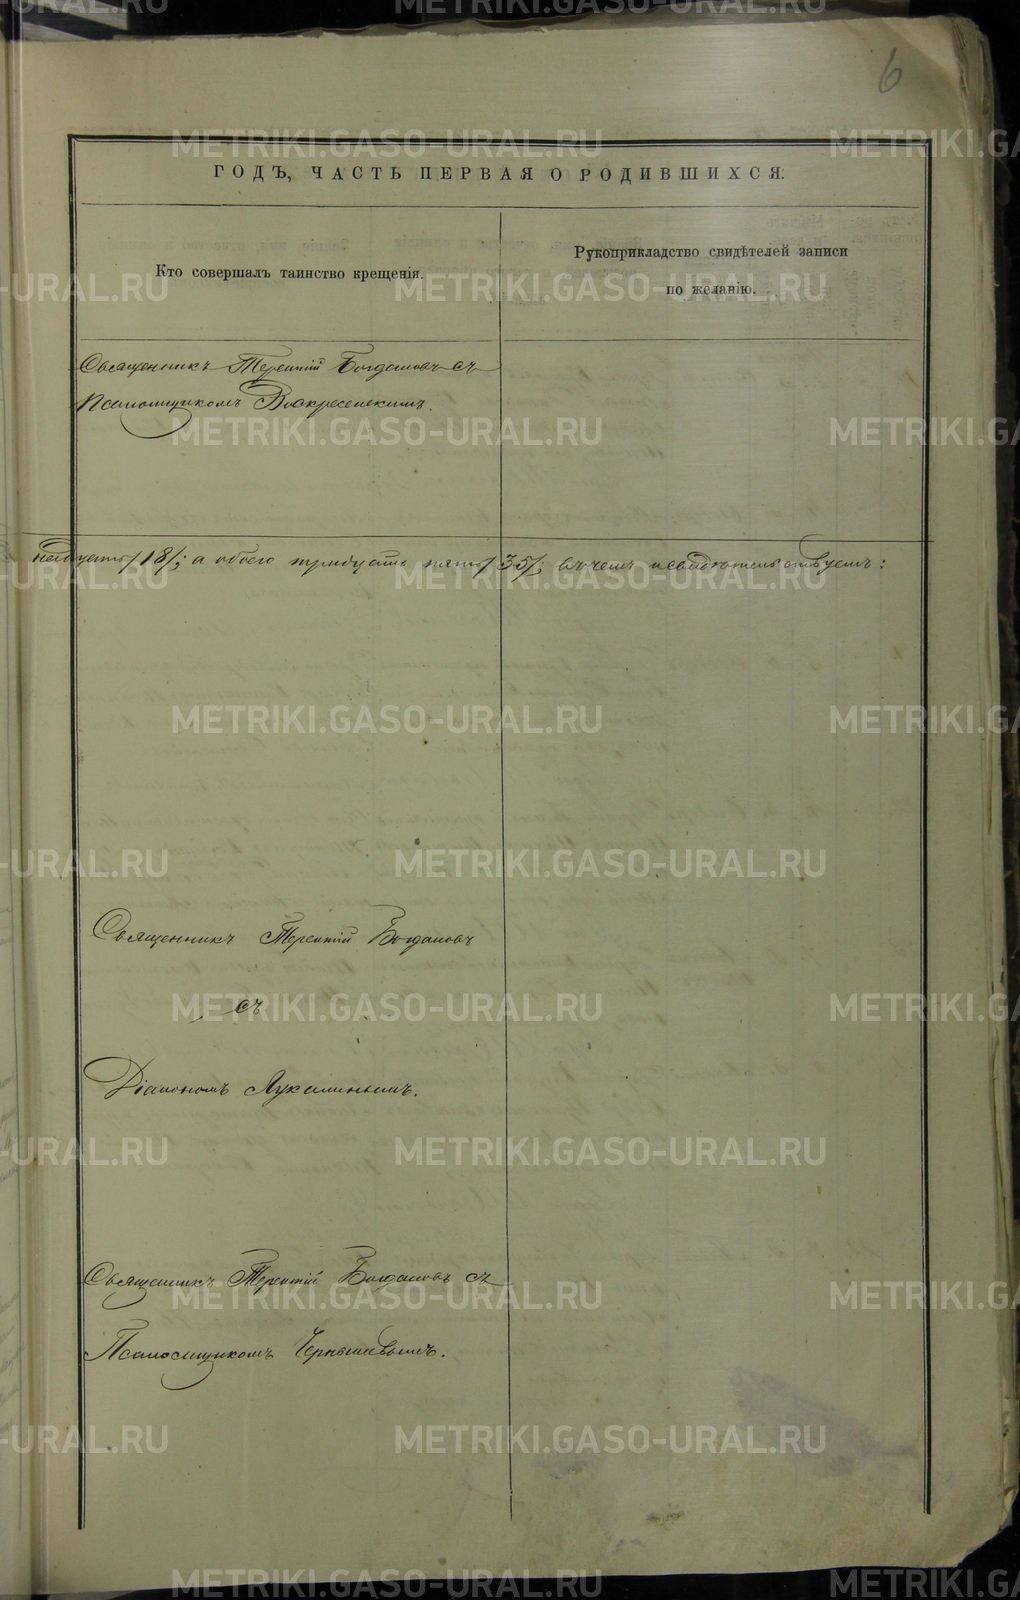 6
ГОДЪ, ЧАСТЬ ПЕРВАЯ О РОДИВШИХСЯ.
Кто совершалъ таинство крещенія.
Рукоприкладство свидѣтелей записи
по желанію.
Священникъ Терентій Богдановъ съ
Псаломщикомъ Воскресенскимъ.
надцать /18/; а обоего тридцать пять /35/; въ чемъ и свидѣтельствуемъ:
Священникъ Терентій Богдановъ
съ
Діакономъ Лукаминымъ.
Священникъ Терентій Богдановъ съ
Псаломщикомъ Чернышевымъ.
METRIKI.GASO-URAL.RU